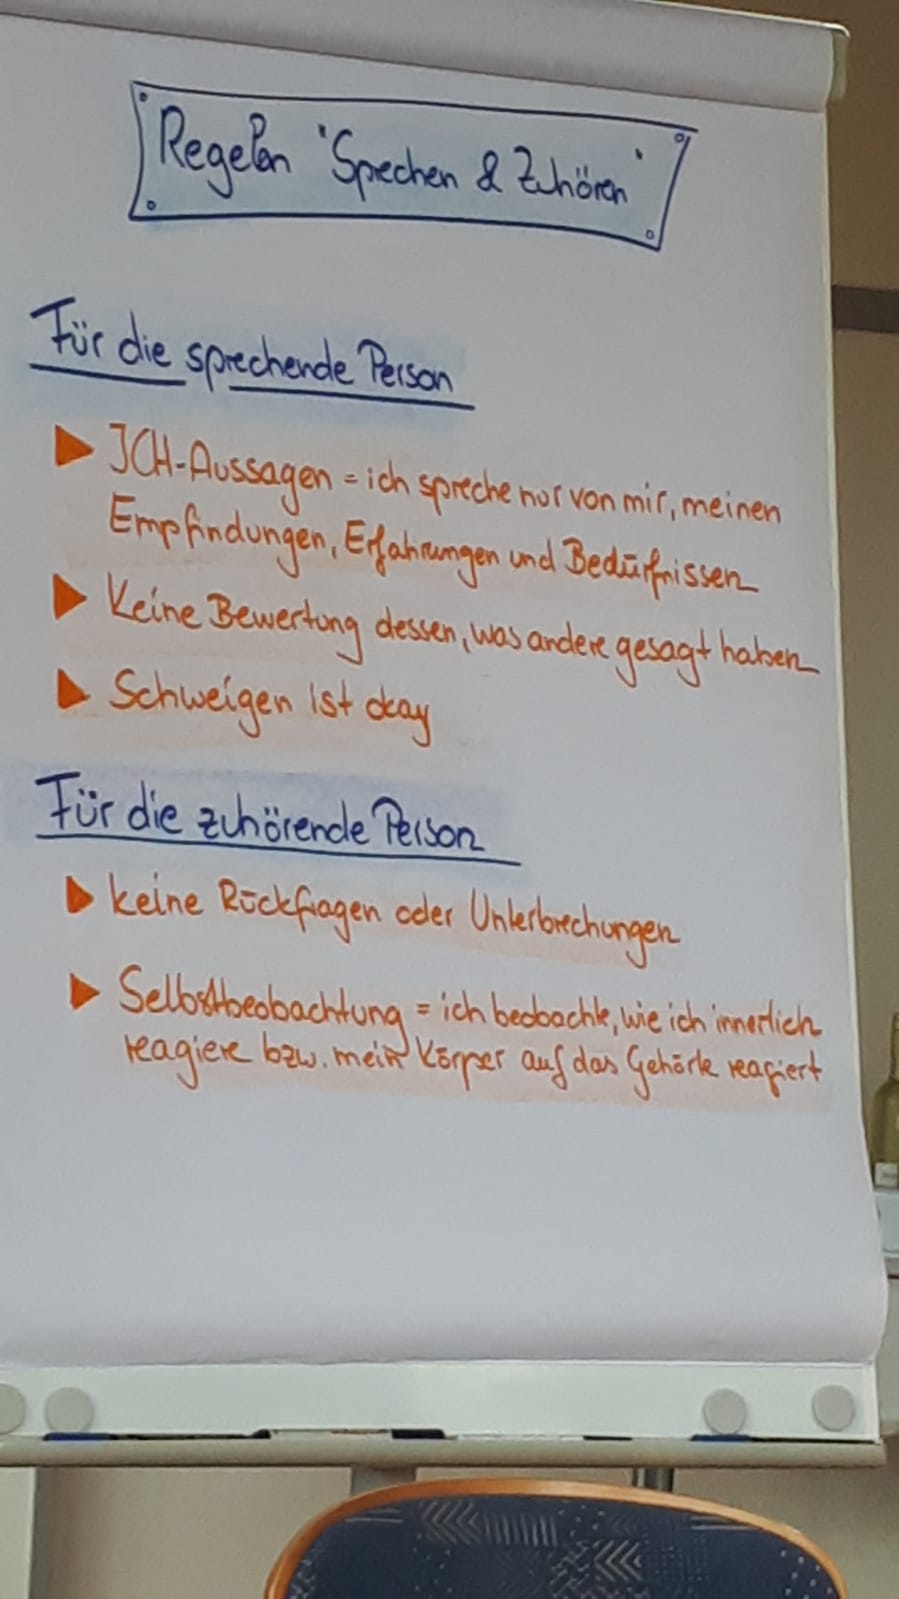 Regeln "Sprechen & Zuhören"
Für die sprechende Person
▶ ICH-Aussagen = ich spreche nur von mir, meinen
Empfindungen, Erfahrungen und Bedürfnissen
▶ Keine Bewertung dessen, was andere gesagt haben
▶ Schweigen ist okay
Für die zuhörende Person
▶ keine Rückfragen oder Unterbrechungen
▶ Selbstbeobachtung = ich beobachte, wie ich innerlich
reagiere bzw. mein Körper auf das Gehörte reagiert